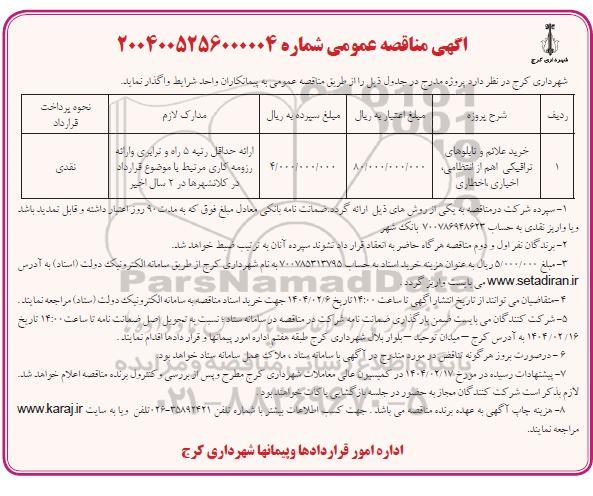 آگهی مناقصه عمومی شماره ۲۰۰۴۰۰۵۲۵۶۰۰۰۰۰۴
شهرداری کرج
شهرداری کرج در نظر دارد پروژه مندرج در جدول ذیل را از طریق مناقصه عمومی به پیمانکاران واحد شرایط واگذار نماید.
ردیف
شرح پروژه
مبلغ اعتبار به ریال
مبلغ سپرده به ریال
مدارک لازم
نحوه پرداخت قرارداد
۱
خرید علائم و تابلوهای
ترافیکی اهم از انتظامی،
اخباری ،اخطاری
۸۰/۰۰۰/۰۰۰/۰۰۰
۴/۰۰۰/۰۰۰/۰۰۰
ارائه حداقل رتبه ۵ راه و ترابری وارائه
رزومه کاری مرتبط با موضوع قرارداد
در کلانشهرها در ۲ سال اخیر
نقدی
۱-سپرده شرکت درمناقصه به یکی از روش های ذیل ارائه گردد.ضمانت نامه بانکی معادل مبلغ فوق که به مدت ۹۰ روز اعتبار داشته و قابل تمدید باشد
ویا واریز نقدی به حساب ۷۰۰۷۸۶۹۴۸۶۲۳ بانک شهر
۲-برندگان نفر اول و دوم مناقصه هرگاه حاضر به انعقاد قرار داد نشوند سپرده آنان به ترتیب ضبط خواهد شد.
۳- مبلغ ۵/۰۰۰/۰۰۰ ریال به عنوان هزینه خرید اسناد به حساب ۷۰۰۷۸۵۳۱۳۷۹۵ به نام شهرداری کرج از طریق سامانه الکترونیک دولت (استاد) به آدرس
www.setadiran.ir می بایست واریز گردد.
۴-متقاضیان می توانند از تاریخ انتشار آگهی تا ساعت ۱۴:۰۰ تاریخ ۱۴۰۴/۰۲/۶ جهت خرید اسناد مناقصه به سامانه الکترونیک دولت (ستاد) مراجعه نمایند.
۵- شرکت کنندگان می بایست ضمن بارگذاری ضمانت نامه شرکت در مناقصه در سامانه ستاد ؛ نسبت به تحویل اصل ضمانت نامه تا ساعت ۱۴:۰۰ تاریخ
۱۴۰۴/۰۲/۱۶ به آدرس کرج – میدان توحید – بلوار بلال شهرداری کرج طبقه هفتم اداره امور پیمانها و قرار دادها اقدام نمایند.
۶ -درصورت بروز هرگونه تناقض در مورد مندرج در آگهی با سامانه ستاد ، ملاک عمل سامانه ستاد خواهد بود.
۷-پیشنهادات رسیده در مورخ ۱۴۰۴/۰۲/۱۷ در کمیسیون عالی معاملات شهرداری کرج مطرح و پس از بررسی و کنترل برنده مناقصه اعلام خواهد شد.
لازم بذکر است شرکت کنندگان مجاز به حضور در جلسه بازگشایی پاکات خواهند بود.
۸- هزینه چاپ آگهی به عهده برنده مناقصه می باشد . جهت کسب اطلاعات بیشتر با شماره تلفن ۳۵۸۹۲۴۲۱-۰۲۶تلفن ویا به سایت www.karaj.ir
مراجعه نمایند.
اداره امور قراردادها وپیمانها شهرداری کرج
ParsNamadData